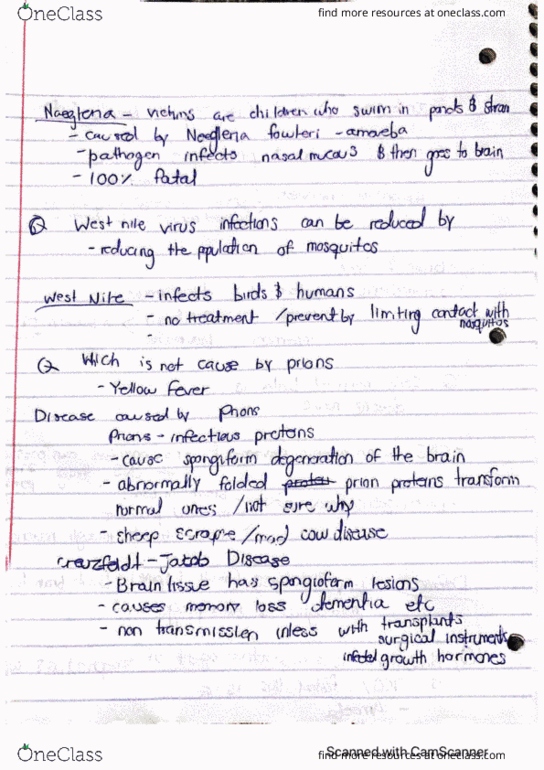 OneClass
find more resources at oneclass.com
Naeglena - victims are children who swim in ponds & stream
- caused by Neeglena fowleri - amoeba
- pathogen infects nasal mucus & then goes to brain
- 100% fatal
Q West nile virus infections can be reduced by
- reducing the ppulation of mosquitos
West Nile - infects birds & humans
- no treatment / prevent by limiting contact with
mosquitos
-
Q Which is not cause by prions
- Yellow fever
Disease caused by Prions
Prions - infectious protens
- cause spongiform degeneration of the brain
- abnormally folded prion proteins transform
normal ones / not sure why
- sheep scrapie / mad cow disease
Creuzfeldt - Jacob Disease
- Brain tissue has spongioform lesions
- causes memory loss dementia etc
- non transmission unless with transplants
surgical instruments
infected growth hormones
Scanned with CamScanner
OneClass
find more resources at oneclass.com